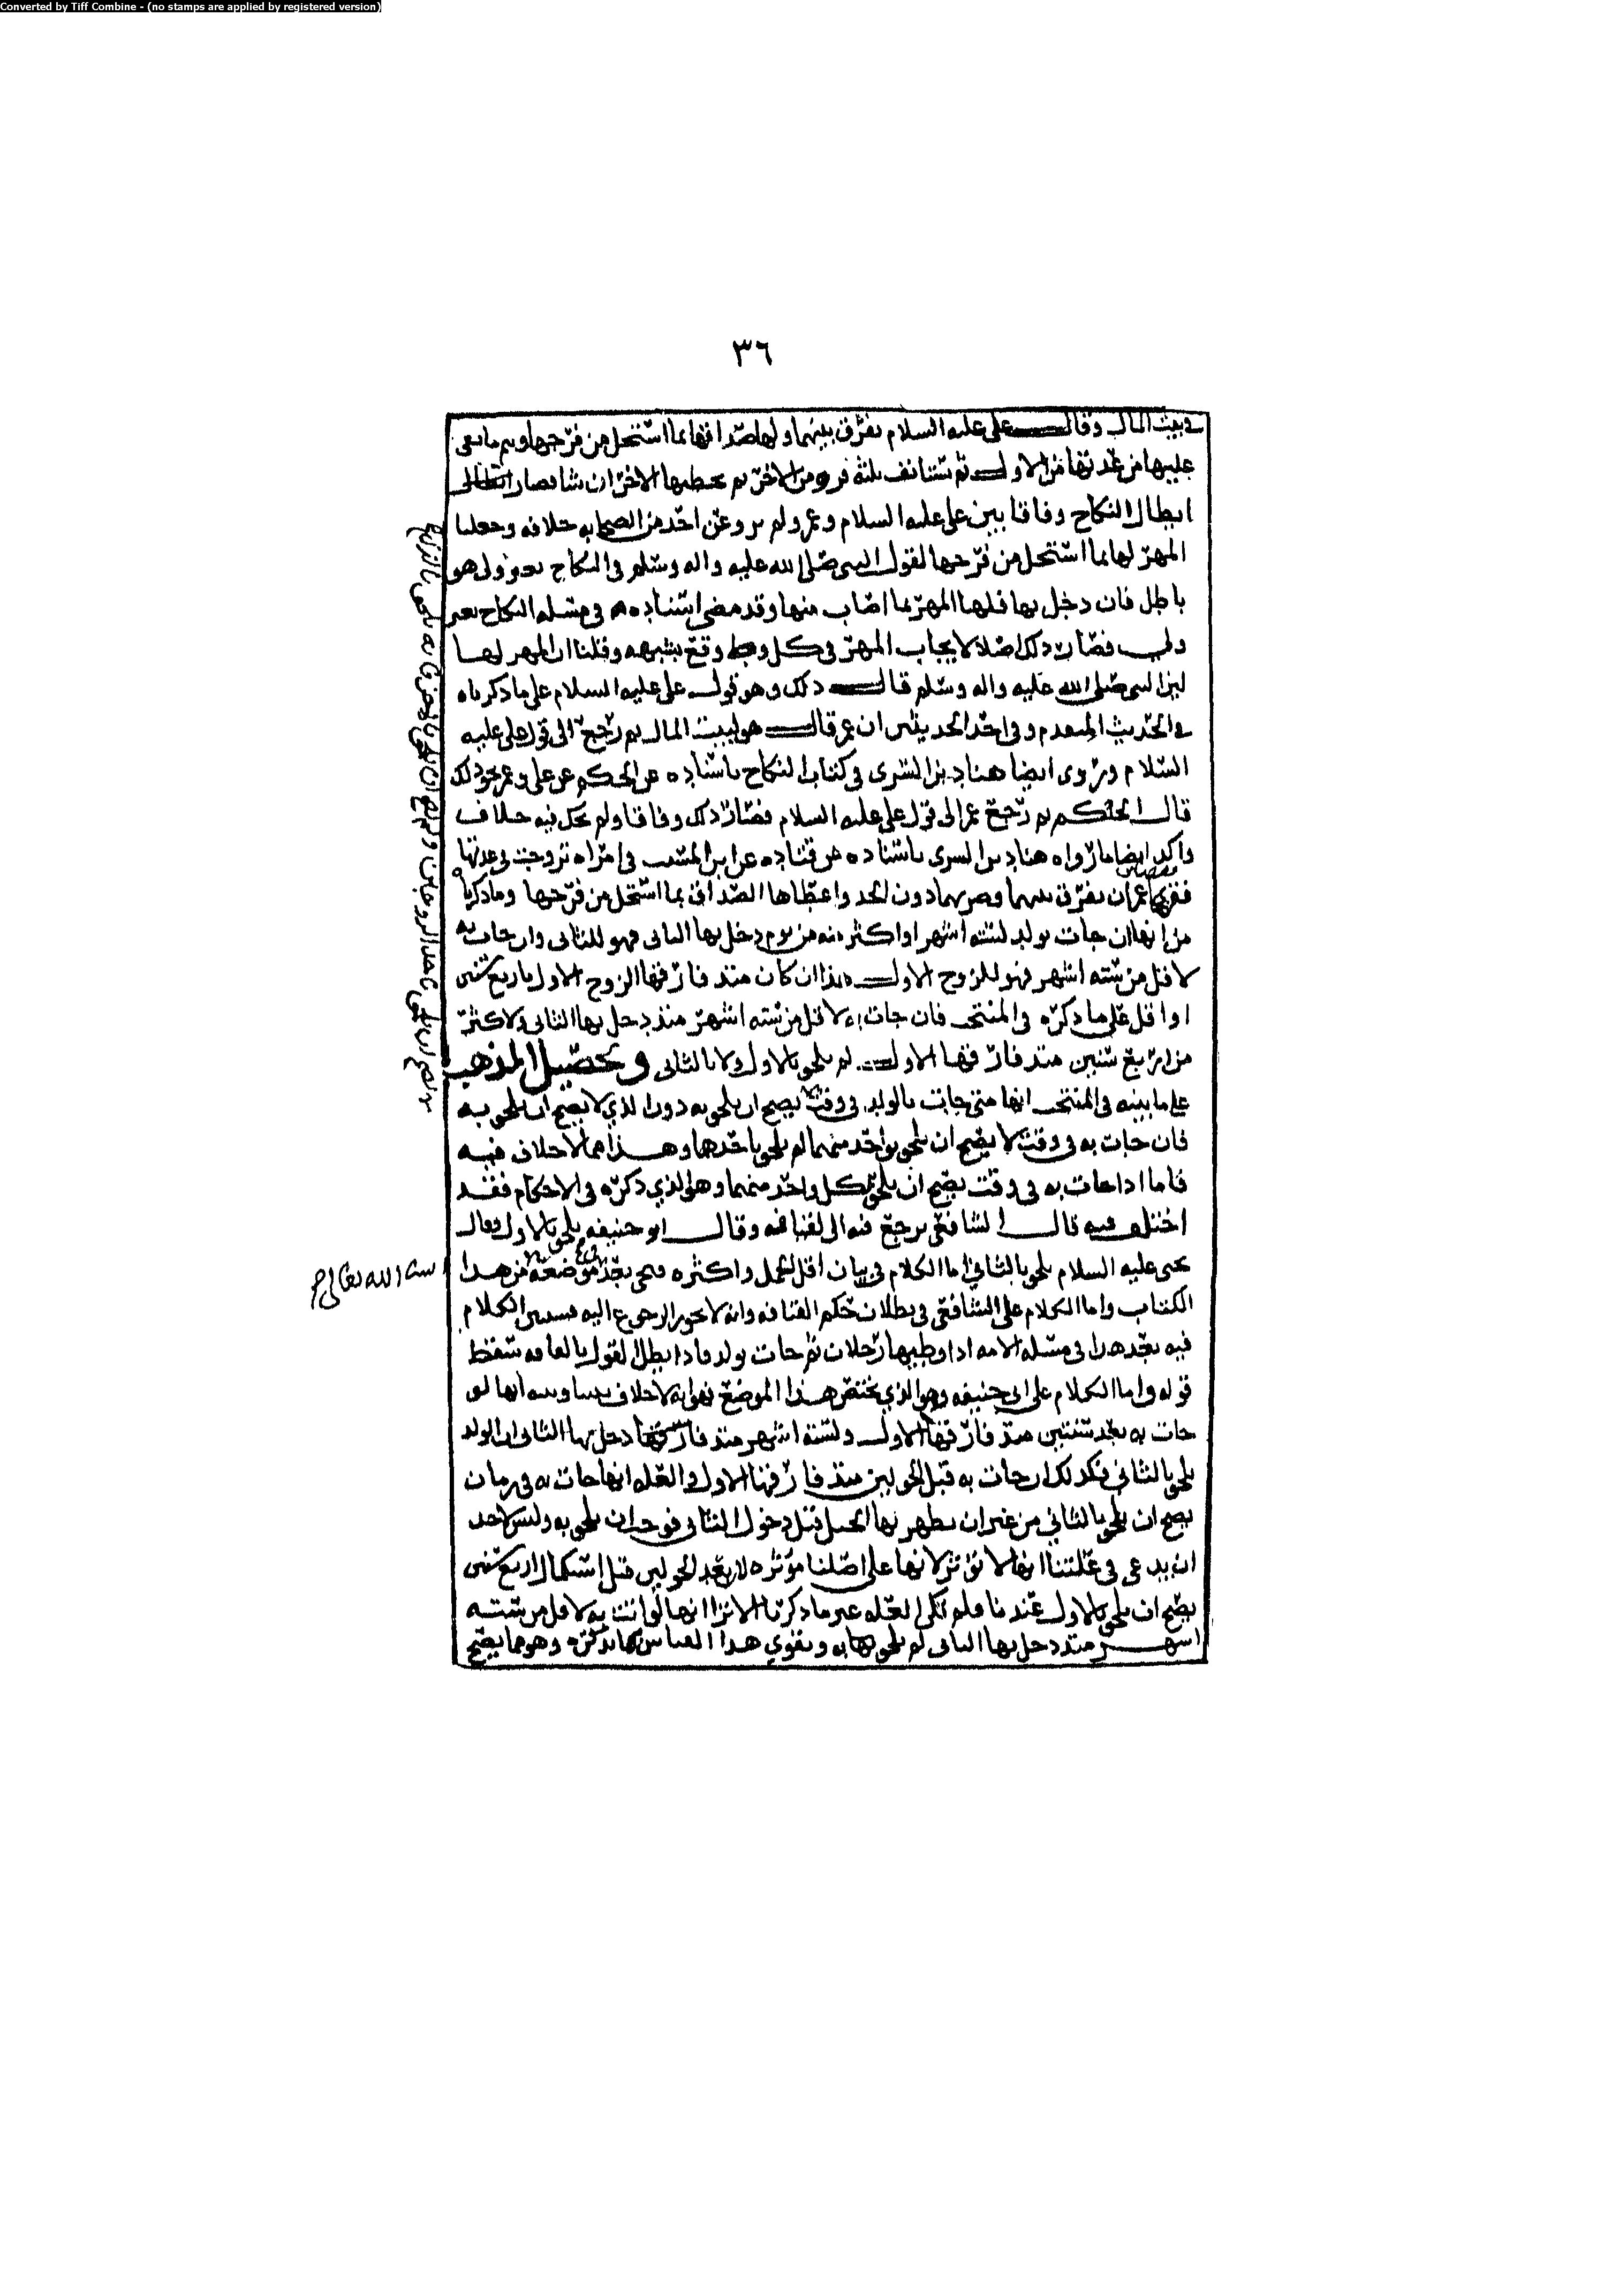 Converted by Tiff Combine - (no stamps are applied by registered version)
٣٦
في بيت المال وقال علي عليه السلام يفرق بينهما ولها صداقها بما استحل من فرجها ويتم ما بقي
عليها من عدتها من الاول ثم تستانف ثلثه قروء من الاخر ثم يخطبها الاخر ان شا فصار
ابطال النكاح وفاقا بين علي عليه السلام وعمر ولم يرو عن احد من الصحابه خلافه وجعلنا
المهر لها بما استحل من فرجها لقول النبي صلى الله عليه واله وسلم في النكاح بغير ولي هو
باطل فان دخل بها فلها المهر بما اصاب منها وقد مضى اسناده في مسله النكاح بغير
ولي فصار ذلك اصلا لايجاب المهر في كل وطء وقع بشبهه وقلنا ان المهر لها
لان النبي صلى الله عليه واله وسلم قال ذلك وهو قول علي عليه السلام على ما ذكرناه
في الحديث المتقدم وفي احد الحديثين ان عمر قال هو لبيت المال ثم رجع الى قول علي عليه
السلام وروى ايضا هناد بن السري في كتاب النكاح باسناده عن الحكم عن علي وعمر نحو ذلك
قال الحكم ثم رجع عمر الى قول علي عليه السلام فصار ذلك وفاقا ولم يحك فيه خلاف
واكد ايضا ما رواه هناد بن السري باسناده عن قتاده عن ابن المسيب في امراه تزوجت في عدتها
عمر ان يفرق بينهما وضربهما دون الحد واعطاها الصداق بما استحل من فرجها وما ذكرناه
من انها ان جات بولد لسته اشهر او اكثر منه من يوم دخل بها الثاني فهو للثاني وان جات به
لاقل من سته اشهر فهو للزوج الاول هذا ان كان منذ فارقها الزوج الاول باربع سنين
او اقل على ما ذكره في المنتخب فان جات به لاقل من سته اشهر منذ دخل بها الثاني ولاكثر
من اربع سنين منذ فارقها الاول لم يلحق بالاول ولا بالثاني وتحصيل المذهب
على ما بينه في المنتخب انها متى جات بالولد في وقت يصح ان يلحق به دون الذي لا يصح ان يلحق به
فان جات به في وقت لا يصح ان يلحق بواحد منهما لم يلحق باحدهما وهذا مما لا خلاف فيه
فاما اذا جات به في وقت يصح ان يلحق بكل واحد منهما وهو الذي ذكره في الاحكام فقد
اختلف فيه قال الشافعي يرجع فيه الى القافه وقال ابو حنيفه يلحق بالاول وقال
يحيى عليه السلام يلحق بالثاني اما الكلام في بيان اقل الحمل واكثره فيجي بعد موضعه من هذا
ان شا الله تعالى
الكتاب واما الكلام على الشافعي في بطلان حكم القافه وانه لا يجوز الرجوع اليه فسيجي الكلام
فيه بعد هذا في مسله الامه اذا وطيها رجلان ثم جات بولد فاذا بطل القول بالقافه سقط
قوله واما الكلام على ابي حنيفه وهو الذي يختص هذا الموضع فهو انه لا خلاف بيننا وبينه انها لو
جات به بعد سنتين منذ فارقها الاول ولسته اشهر منذ دخل بها الثاني ان الولد
يلحق بالثاني فكذلك ان جات به قبل الحولين منذ فارقها الاول والعله انها جات به في زمان
يصح ان يلحق بالثاني من غير ان يظهر بها الحبل قبل دخول الثاني فوجب ان يلحق به وليس لاحد
ان يدعي في علتنا انها لا تؤثر لانها على اصلنا مؤثره لان بعد الحولين قبل استكمال اربع سنين
يصح ان يلحق بالاول عندنا فلم تكن العله غير ما ذكرنا الا ترا انها لو اتت به لاقل من سته
اشهر منذ دخل بها الثاني لم يلحق به ويقوي هذا القياس ما نذكره وهو مما يصح